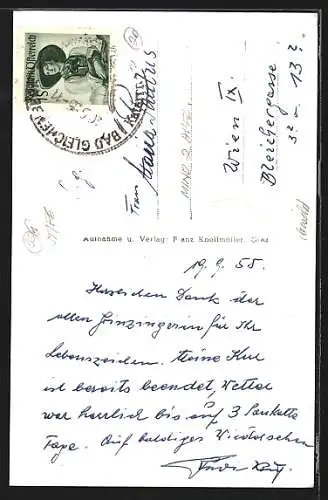 Republik Österreich
BAD GLEICHENBERG
Kurort
Frau
Maria
Wien IX.
Bleichergasse
13
Aufnahme u. Verlag: Franz Knollmüller, Graz
19. 9. 55.
Herzlichen Dank der
allen Grinzingerin für Ihr
Lebenszeichen. Meine Kur
ist bereits beendet, Wetter
war herrlich bis auf 3
Tage. Auf baldiges Wiedersehen